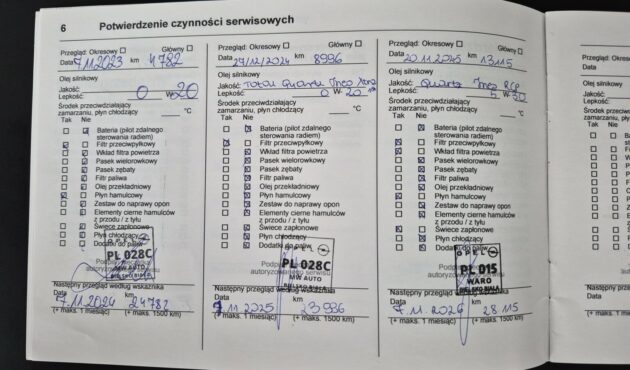 6 Potwierdzenie czynności serwisowych
Przegląd: Okresowy Główny
Data 7.11.2023 km 4782
Olej silnikowy
Jakość:
Lepkość: 0 W- 20
Środek przeciwdziałający
zamarzaniu, płyn chłodzący °C
Tak Nie
Bateria (pilot zdalnego
sterowania radiem)
Filtr przeciwpyłkowy
Wkład filtra powietrza
Pasek wielorowkowy
Pasek zębaty
Filtr paliwa
Olej przekładniowy
Płyn hamulcowy
Zestaw do naprawy opon
Elementy cierne hamulców
z przodu / z tyłu
Świece zapłonowe
Płyn chłodzący
Dodatki do paliw
OPEL
PL 028C
MW AUTO
BIELSKO-BIAŁA
Następny przegląd według wskaźnika
Data km
7.11.2024 24782
(+ maks. 1 miesiąc) (+ maks. 1500 km)
Przegląd: Okresowy Główny
Data 24/12/2024 km 8996
Olej silnikowy
Jakość: Total Quartz Ineo
Lepkość: 0 W- 20
Środek przeciwdziałający
zamarzaniu, płyn chłodzący °C
Tak Nie
Bateria (pilot zdalnego
sterowania radiem)
Filtr przeciwpyłkowy
Wkład filtra powietrza
Pasek wielorowkowy
Pasek zębaty
Filtr paliwa
Olej przekładniowy
Płyn hamulcowy
Zestaw do naprawy opon
Elementy cierne hamulców
z przodu / z tyłu
Świece zapłonowe
Płyn chłodzący
Dodatki do paliw
OPEL
PL 028C
MW AUTO
BIELSKO-BIAŁA
autoryzowanego serwisu
Następny przegląd według wskaźnika
Data km
11 2025 23996
(+ maks. 1 miesiąc) (+ maks. 1500 km)
Przegląd: Okresowy Główny
Data 20 11 2025 km 13115
Olej silnikowy
Jakość: Quartz Ineo
Lepkość: W-
Środek przeciwdziałający
zamarzaniu, płyn chłodzący °C
Tak Nie
Bateria (pilot zdalnego
sterowania radiem)
Filtr przeciwpyłkowy
Wkład filtra powietrza
Pasek wielorowkowy
Pasek zębaty
Filtr paliwa
Olej przekładniowy
Płyn hamulcowy
Zestaw do naprawy opon
Elementy cierne hamulców
z przodu / z tyłu
Świece zapłonowe
Płyn chłodzący
Dodatki do paliw
OPEL
PL 015
WARO
BIELSKO-BIAŁA
Następny przegląd według wskaźnika
Data km
7 11 2026 28 115
(+ maks. 1 miesiąc) (+ maks. 1500 km)